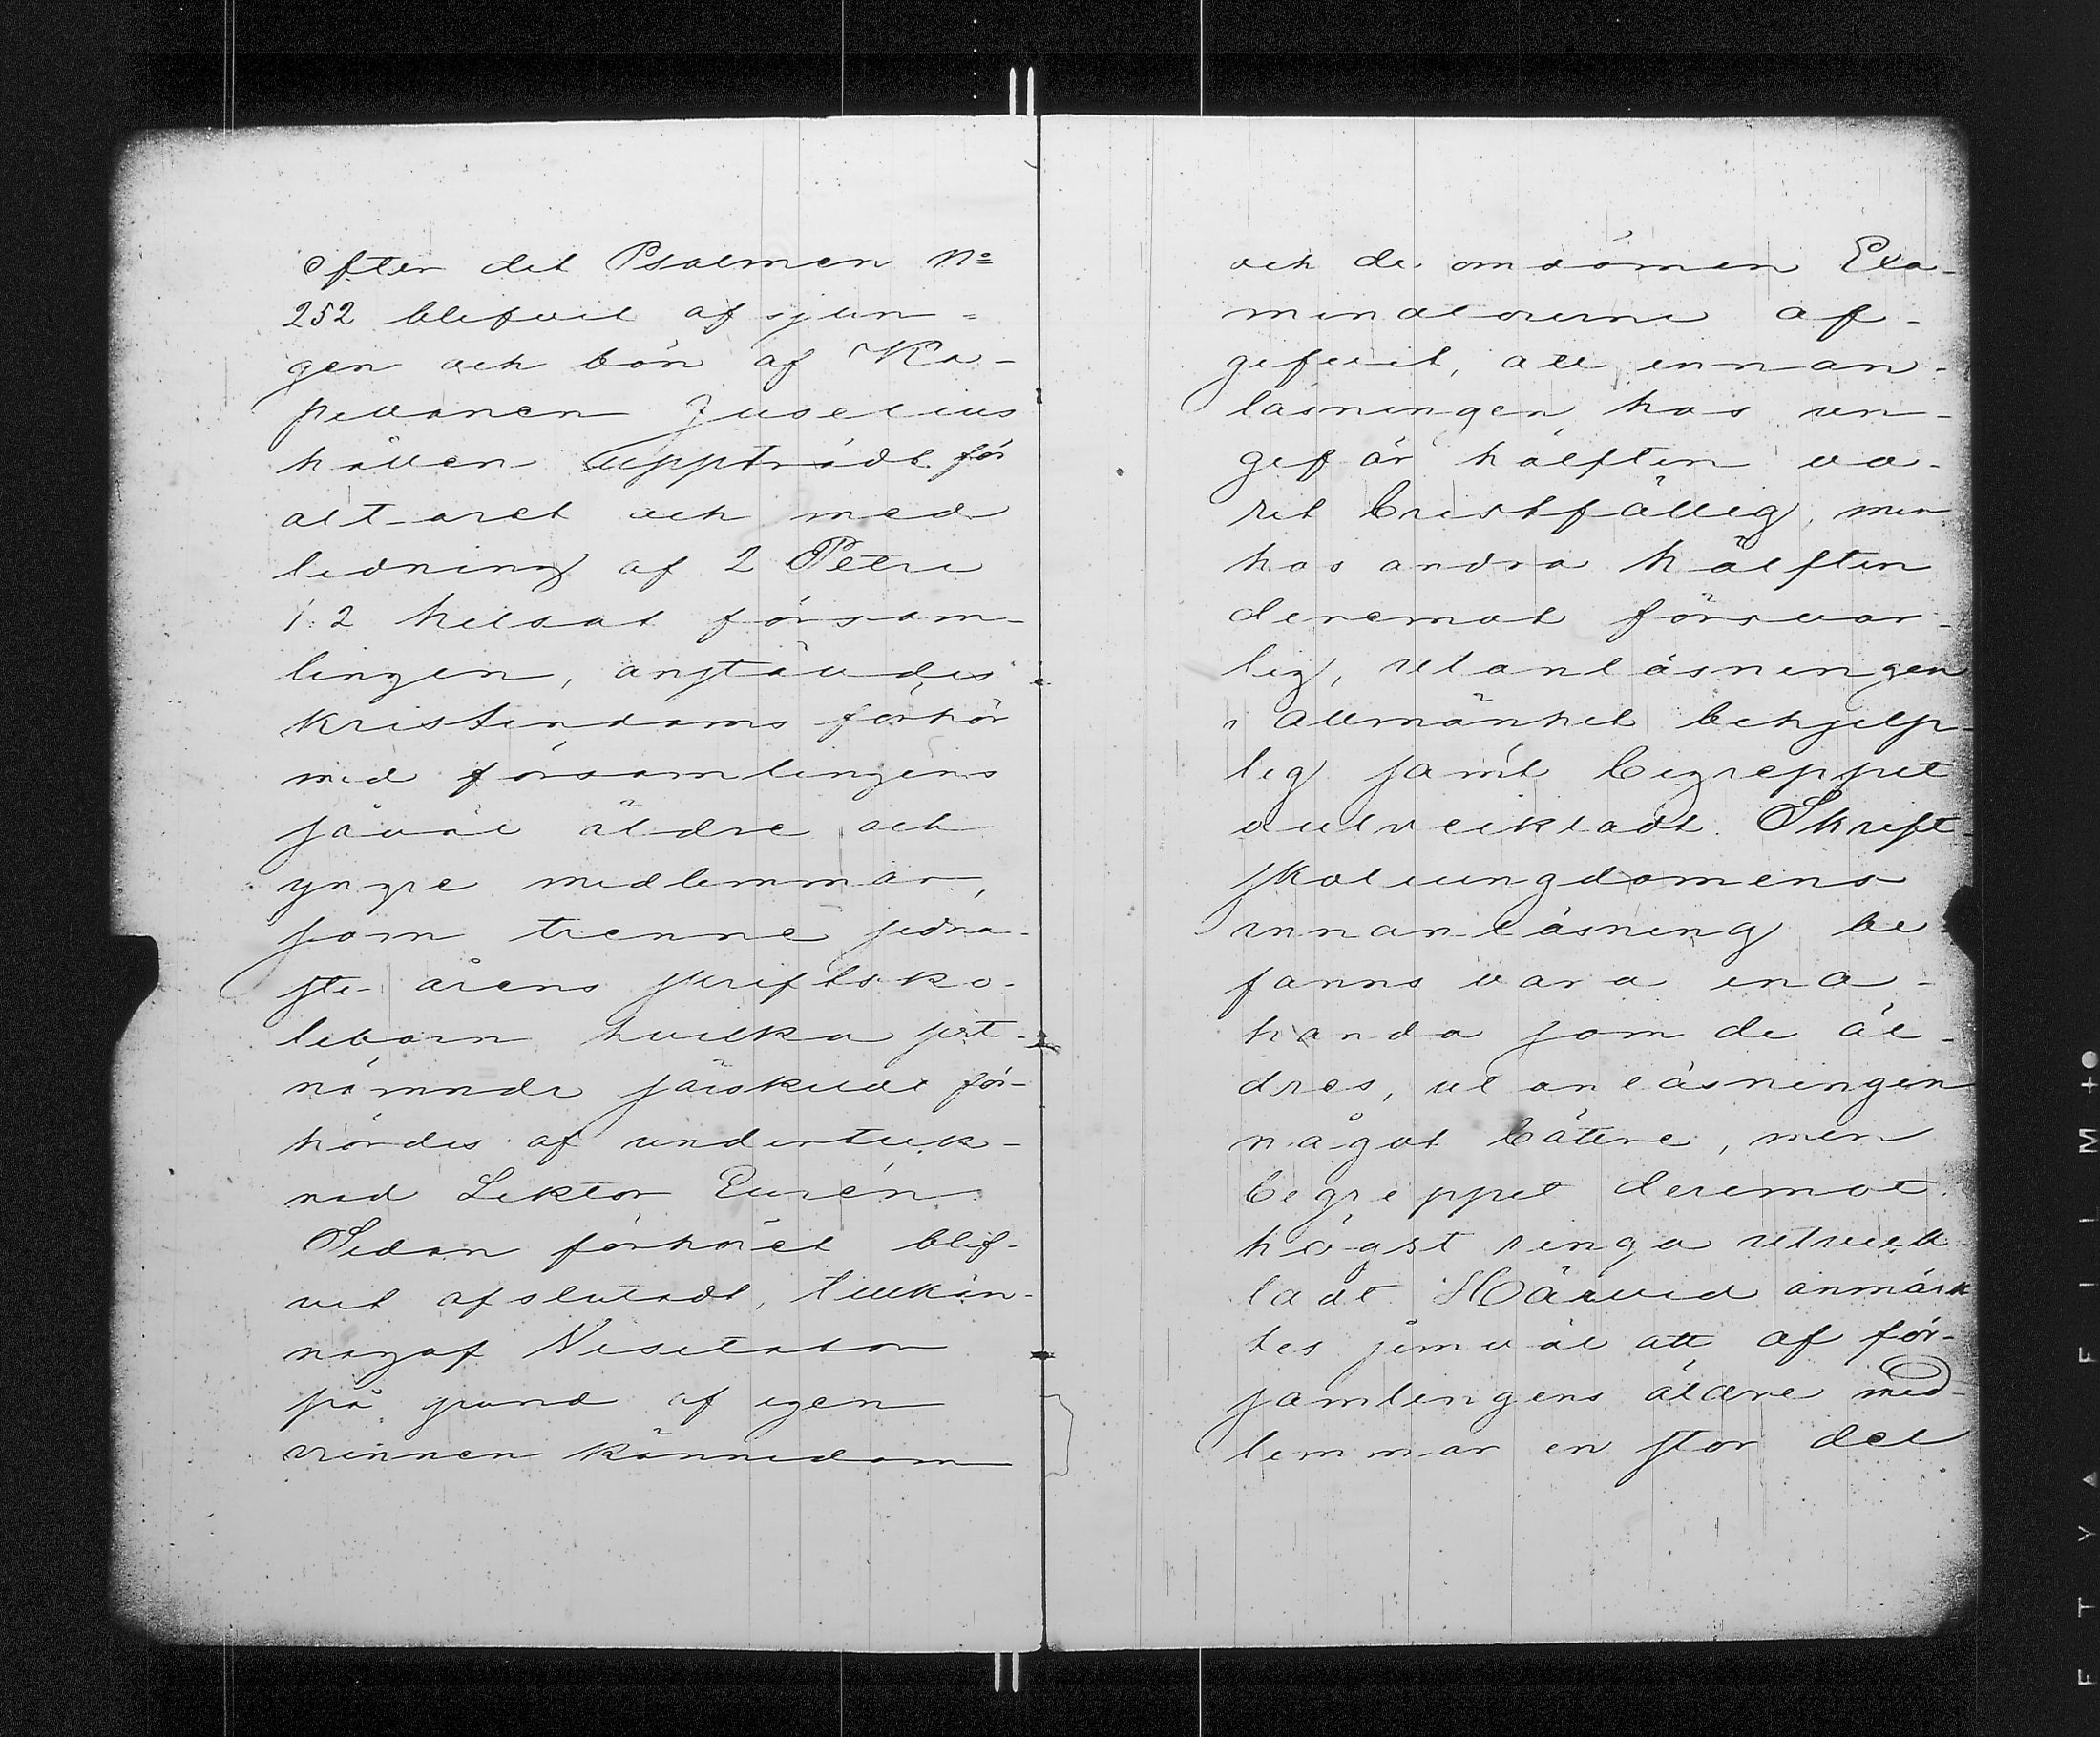 Efter det Psalmen No
252 blifvit afsjun=
gen och bön af Ka-
pellanen Juselius
hållen uppträdt för
alt-aret och med
ledning af 2 Petri
1:2 helsat försam-
lingen, anstäldes
kristendoms förhör
med församlingens
såväl äldre och
yngre medlemmar,
som trenne sedna-
ste årens skriftsko-
lebarn hvilka sist-
nämnde särskildt för-
hördes af underteck-
nad Lektor Eurén.
Sedan förhöret blif-
vit afslutadt, tillkän-
nagaf Visitator
på grund af egen
vunnen kännedom
och de omdömen Exa-
minatorerne af-
gifvit, att innan-
läsningen hos un-
gefär hälften va-
rit bristfällig, men
hos andra hälften
deremot försvar-
lig, utanläsningen
i allmänhet behjelp-
lig samt begreppet
outveckladt. Skrift-
skolungdomens
innanläsning be-
fanns vara ena-
handa som de äl-
dres, utanläsningen
något bättre, men
begreppet deremot
högst ringa utveck-
ladt. Härvid anmärk
tes jemväl att af för-
samlingens äldre med-
lemmar en stor del
FILM